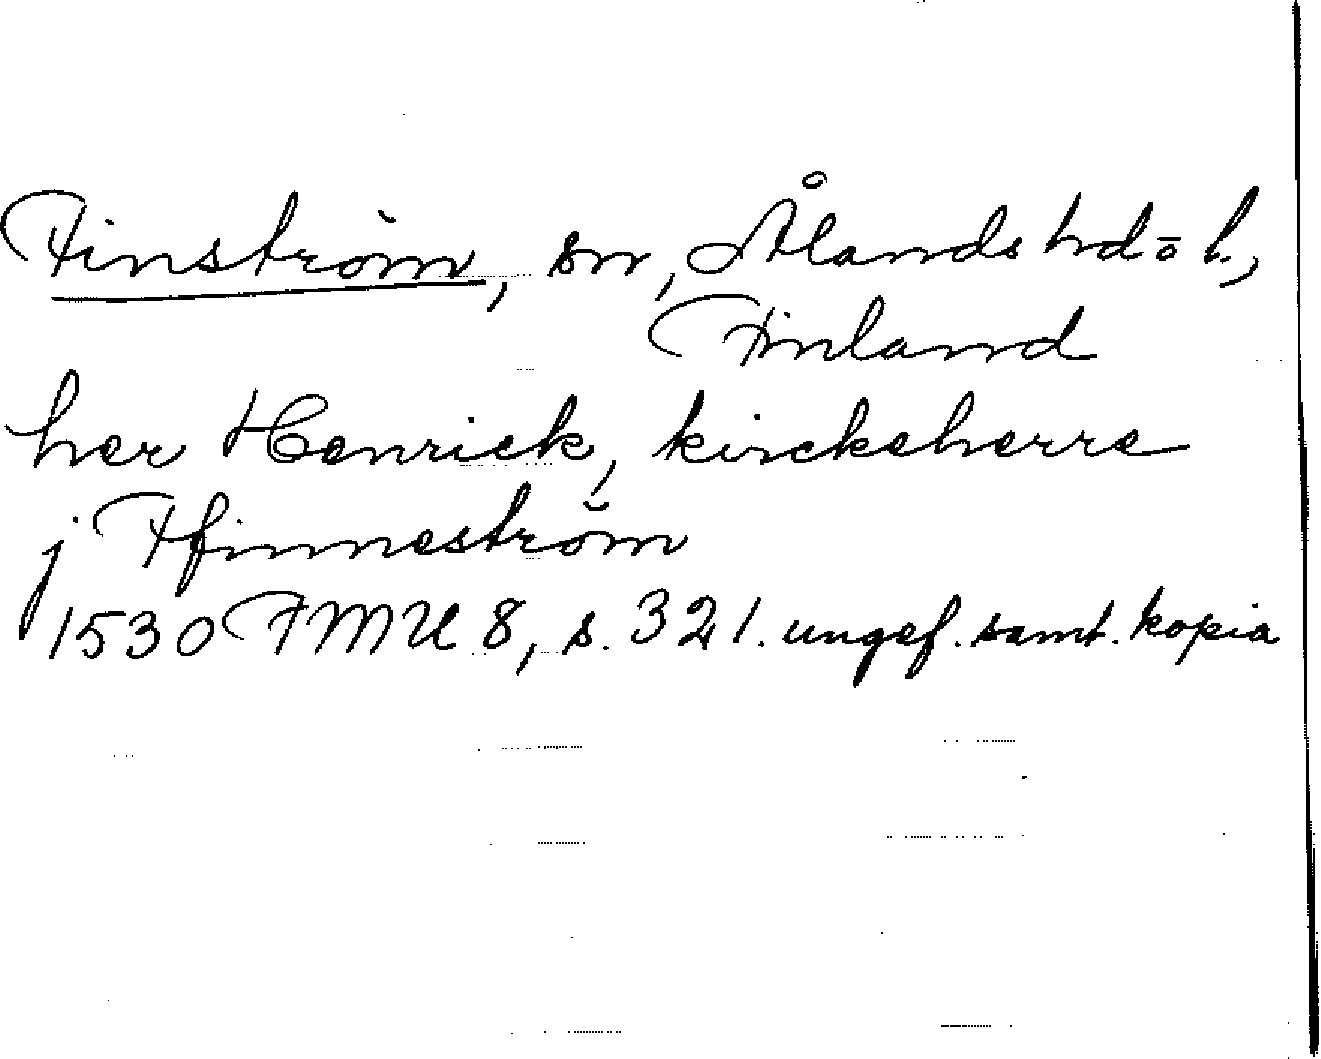 Finström, sn, Ålands hd o l.,
Finland
her Henrick, kirckeherre
j Ffinneström
1530 FMU 8, s. 321. ungef. samt. kopia